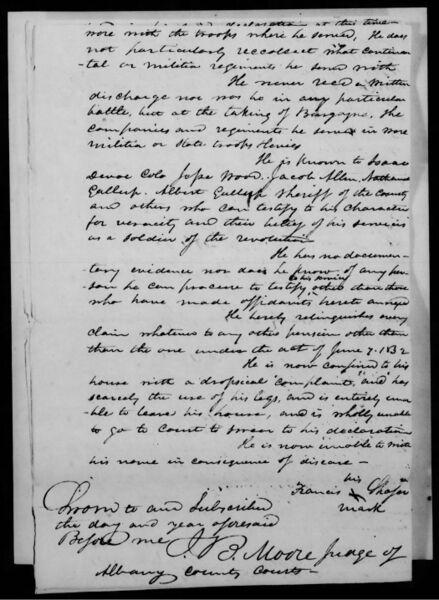 declaration at this time
were with the troops where he served, He does
not particularly reccollect what continen
tal or militia regiments he served with
He never recd a written
discharge nor was he in any particular
battle, but at the taking of Burgoyne, The
companies and regiments he served in were
militia or State troops
He is known to Isaac
Colo Jesse Wood. Jacob Allen, Nathaniel
Gallup. Albert Gallup Sheriff of the County
and others who can testify to his character
for veracity and their belief of his services
as a soldier of the revolution
He has no documen-
tary evidence nor does he know of any per
son he can procure to testify to his services other than those
who have made affidavits hereto annexed
He hereby relinquishes every
claim whatever to any other pension other than
than the one under the act of June 7. 1832
He is now confined to his
house with a dropsical complaint, and has
scarcely the use of his legs, and is entirely una
ble to leave his house, and is wholly unable
to go to Court to swear to his declaration
He is now unable to write
his name in consequence of disease -
Francis his X mark Shafer
Sworn to and Subscribed
the day and year aforesaid
Before me J. B. Moore Judge of
Albany County Courts -